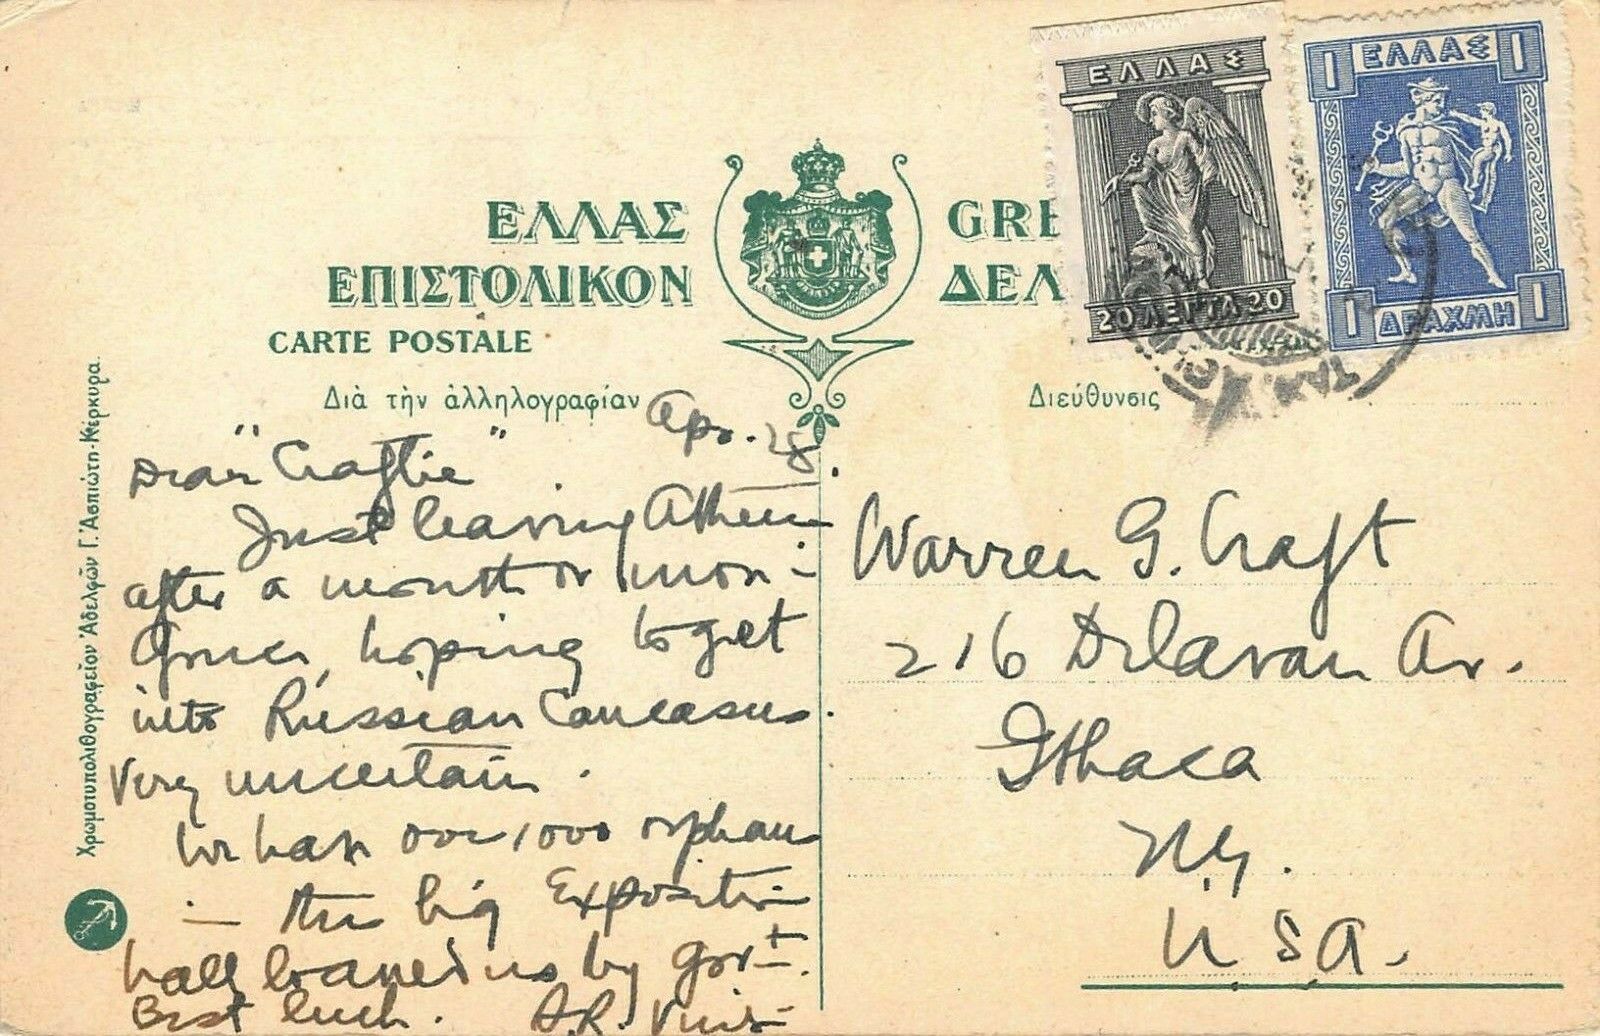 ΕΛΛΑΣ
20 ΛΕΠΤΑ 20
1 ΕΛΛΑΣ 1
1 ΔΡΑΧΜΗ 1
ΕΛΛΑΣ GRE
ΕΠΙΣΤΟΛΙΚΟΝ ΔΕΛ
CARTE POSTALE
Διὰ τὴν ἀλληλογραφίαν
Διεύθυνσις
Χρωμοτυπολιθογραφεῖον Ἀδελφῶν Γ. Ἀσπιώτη-Κέρκυρα.
Apr. 28.
Dear "Craftie"
Just leaving Athens
after a month or more in
Greece, hoping to get
into Russian Caucasus.
Very uncertain.
We have over 1000 orphans
in the big Exposition
hall loaned us by Govt.
Best luck. A.R.
Warren G. Craft
216 Delavan Av.
Ithaca
N.Y.
U.S.A.